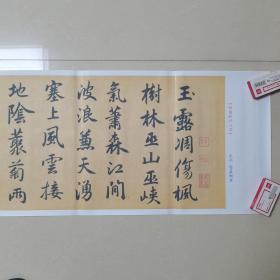 玉露凋傷楓
樹林巫山巫峽
氣蕭森江間
波浪兼天湧
塞上風雲接
地陰叢菊兩